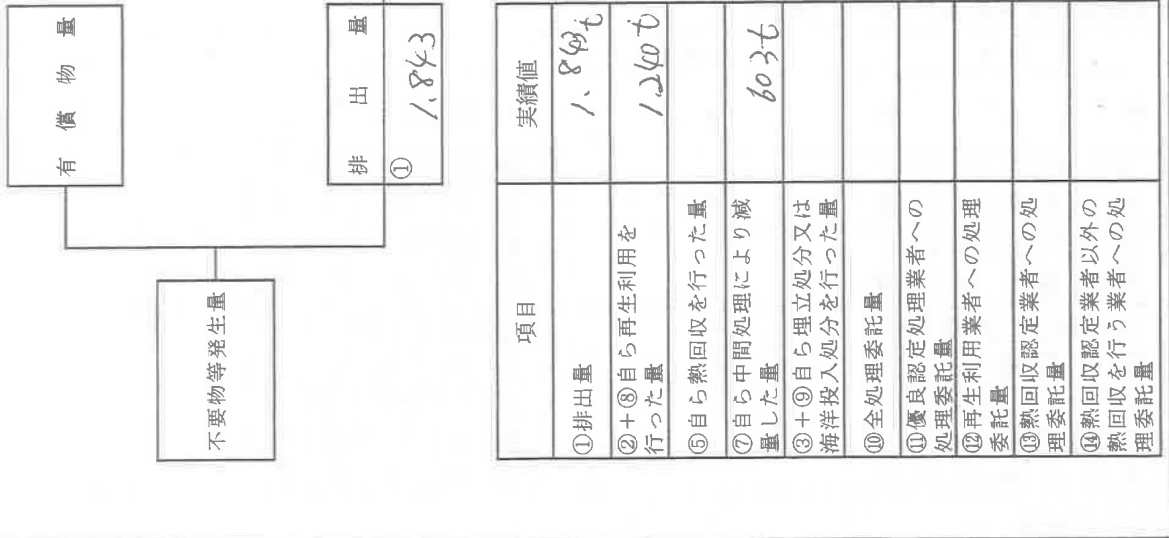 有償物量
不要物等発生量
排出量
①
1.843
項目
実績値
①排出量
1.843t
②+⑧自ら再生利用を
行った量
1.240t
⑤自ら熱回収を行った量
⑦自ら中間処理により減
量した量
603t
③+⑨自ら埋立処分又は
海洋投入処分を行った量
⑩全処理委託量
⑪優良認定処理業者への
処理委託量
⑫再生利用業者への処理
委託量
⑬熱回収認定業者への処
理委託量
⑭熱回収認定業者以外の
熱回収を行う業者への処
理委託量